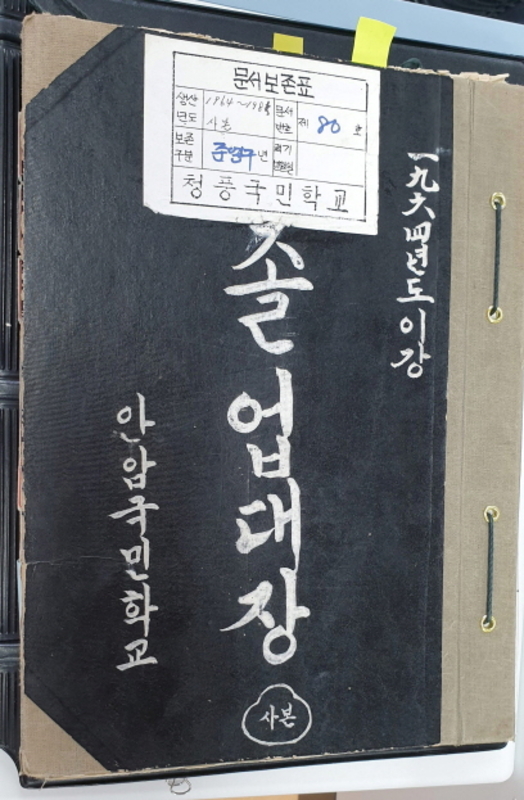 문서보존표
생산년도 1964~1985 사본 문서번호 제 80 호
보존구분 준영구년
청풍국민학교
一九六四년도이강
졸업대장
안암국민학교
사본